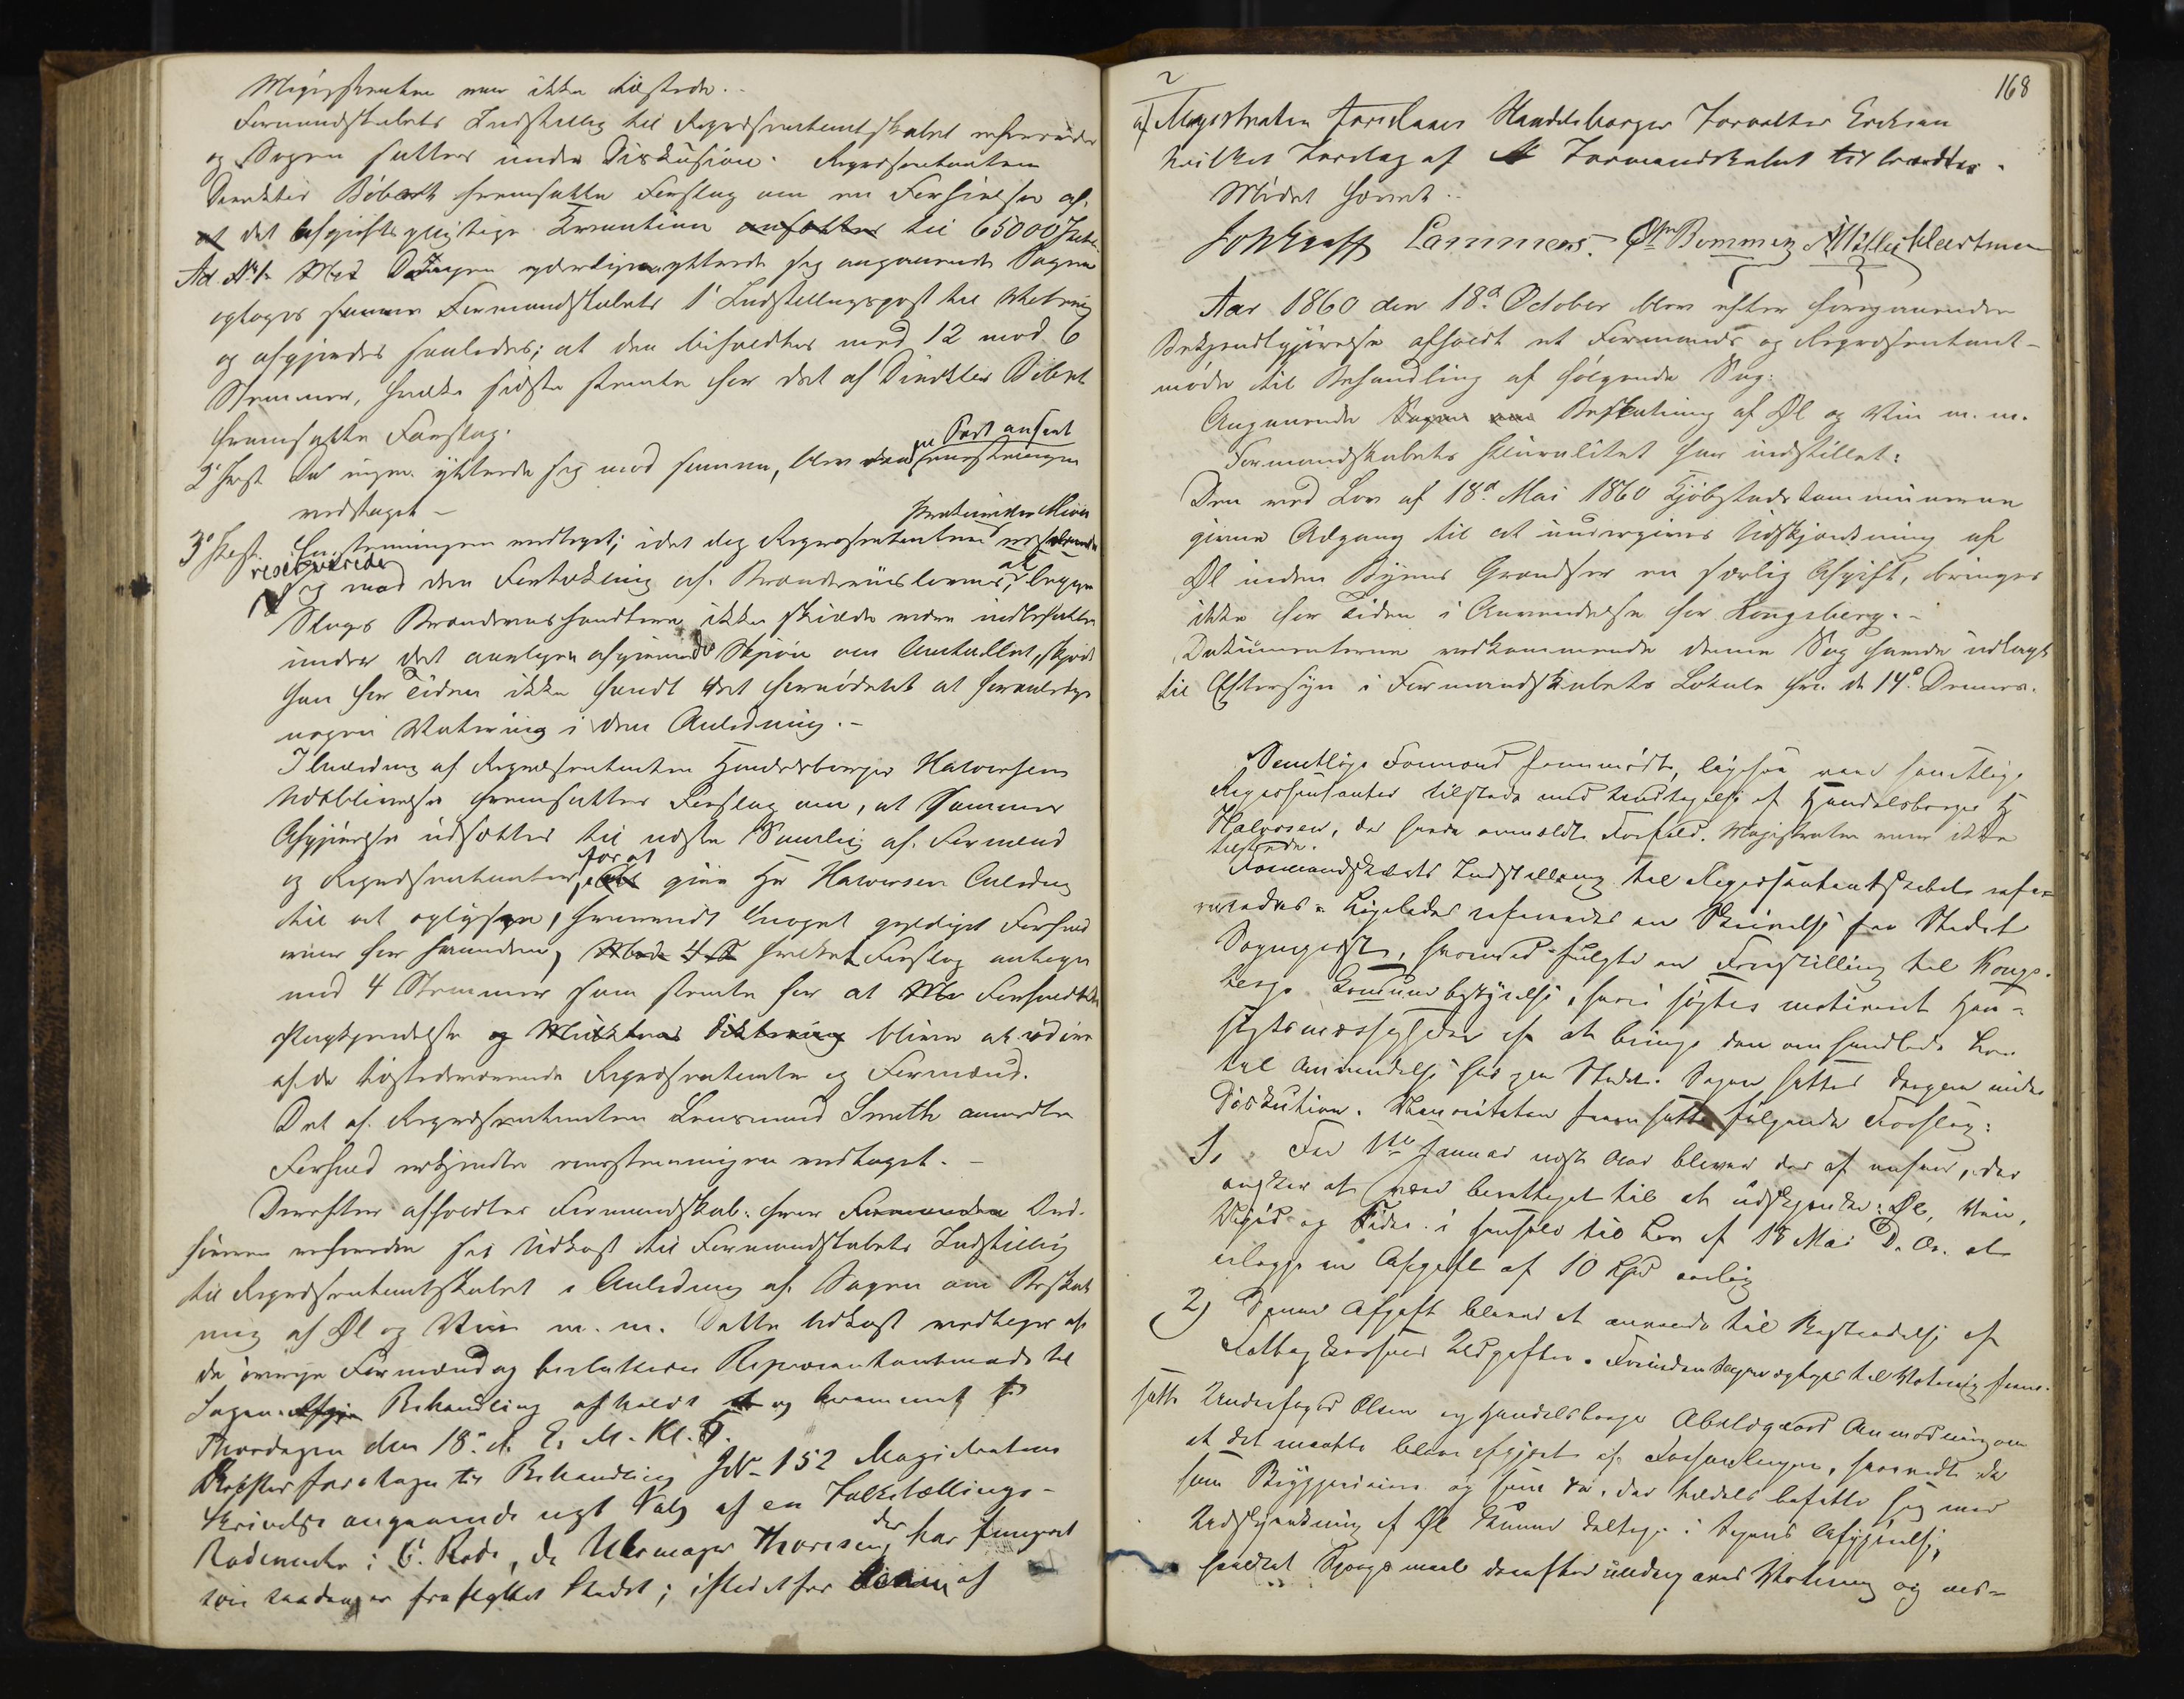 Magistraten var ikke tilstede.
Formandskabets Indstilling til Repræsentantskabet refereredes
og Sagen sattes under Diskusion. Repræsentanten
Direktør Böbert fremsatte Forslag om en Forhøielse af
at det afgiftspligtige Qvantum ansættes til 65000
Ad No 1. Med Da Ingen yderligere yttrede sig angaaende Sagen
optoges samme Formandskabets 1' Indstillingspost til Votering
og afgjordes saaledes; at den bifaldtes med 12 mod 6
Stemmer, hvilke sidste stemte for det af Direktør Böbert
fremsatte Forslag.
2' Post Da ingen yttrede sig mod samme, blev denne Post anseet enstemmigen
vedtaget –
3' Post. Enstemmigen vedtaget; idet dog Repræsentanten
reserverede sig mod den Fortolkning af Brændeviinsloven, at
Slags Brændeviinshandlere ikke skulde være indbefattet
under det anlagen afgivende Skjøn om Antallet, skjøndt
han for Tiden ikke fandt det fornødent at foranledige
nogen Votering i den Anledning. –
I Anledning af Repræsentanten Handelsborger Halvorsens
Udeblivelse fremsattes Forslag om, at Sammes
Afgjørelse udsættes til næste Samling af Formænd
og Repræsentanter, for at give Hr Halvorsen Anledning
til at oplyse, hvorvidt noget gyldigt Forfald
var for haanden, hvilket Forslag antoges
med 4 Stemmer som stemte for at Forfaldets
Paakjendelse og blive at udøve
af de tilstedeværende Repræsentanter og Formænd.
Det af Repræsentanten Lensmand Smith anmeldte
Forfald erkjendtes eenstemmigen vedtaget. –
Derefter afholdtes Formandskab. hvor Formanden Ord-
føreren refererede sit Udkast til Formandskabets Indstilling
til Repræsentantskabet i Anledning af Sagen om Beskat-
ning af Øl og Viin m. m. Dette Udkast vedtoges af
de øvrige Formænd og besluttedes Repræsentantmøde til
Sagens Behandling afholdt og berammet til
Thorsdagen den 18de d. E. M. Kl. 5.
Derefter foretages til Behandling JNo 152 Magistratens
Skrivelse angaaende nyt Valg af en Folketællings-
Rodemester i 6. Rode, da Uhrmager Thoresen, der har fungeret
som saadan, er fraflyttet Stedet; istedetfor denne af
168
af Magistraten foreslaaes Handelsborger Forvalter Ericksen
hvilket Forslag af Formandskabet tiltraadtes.
Mødet hævet.
Lammers. Chr Bommen
Aar 1860 den 18d October blev efter foregaaende
Bekjendtgjørelse afholdt et Formands og Repræsentant-
møde til Behandling af følgende Sag:
Angaaende Sagen om Beskatning af Øl og Viin m. m.
Formandskabets Pluralitet har indstillet:
Den ved Lov af 18d Mai 1860 Kjøbstadkommunerne
givne Adgang til at undergives Udskjænkning af
Øl inden Byens Grændser en særlig Afgift, bringes
ikke for Tiden i Anvendelse for Kongsberg. –
Dokumenterne vedkommende denne Sag havde udlagt
til Eftersyn i Formandskabets Lokale fra d. 14de Dennes.
Samtlige Formænd fremmødte, ligesaa vare samtlige
Repræsentanter tilstede med Undtagelse af Handelsborger H
Halvorsen, der havde anmeldt Forfald. Magistraten var ikke
tilstede.
Formandskabets Indstilling til Repræsentantskabet refe-
reredes. Ligeledes refereredes en Skrivelse fra Stedets
Sogneprest, hvormed fulgte en Forestilling til Kongs-
bergs Kommunebestyrelse, hvori søgtes motiveret Hen-
sigtsmæssigheden af at bringe den omhandlede Lov
til Anvendelse her paa Stedet. Sagen sattes derpaa under
Diskution. Minoriteten fremsatte følgende Forslag:
1, Fra 1ste Januar næste Aar bliver der af enhver, der
ønsker at være berettiget til at udskjænke: Øl, Viin,
Mjød og Cider i Henhold til Lov af 18 Mai d. A. at
erlægge en Afgift af 10 Spd aarlig
2) Denne Afgift bliver at anvende til Bestridelse af
Fattigkassens Udgifter. Forinden Sagen optoges til Votering frem-
satte Undersaged Olsen og Handelsborger Abelsgaard Anmodning om
at det maatte blive afgjort af Forsamlingen, hvorvidt de
som Bryggerieiere og som de, der tildels befatte sig med
Udskjænkning af Øl kunne deltage i Sagens Afgjørelse,
hvilket Spørgsmaal derefter undergaves Votering og ved-